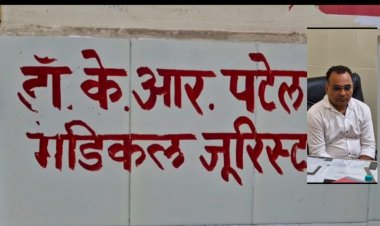 डॉ. के. आर. पटेल
मेडिकल जूरिस्ट